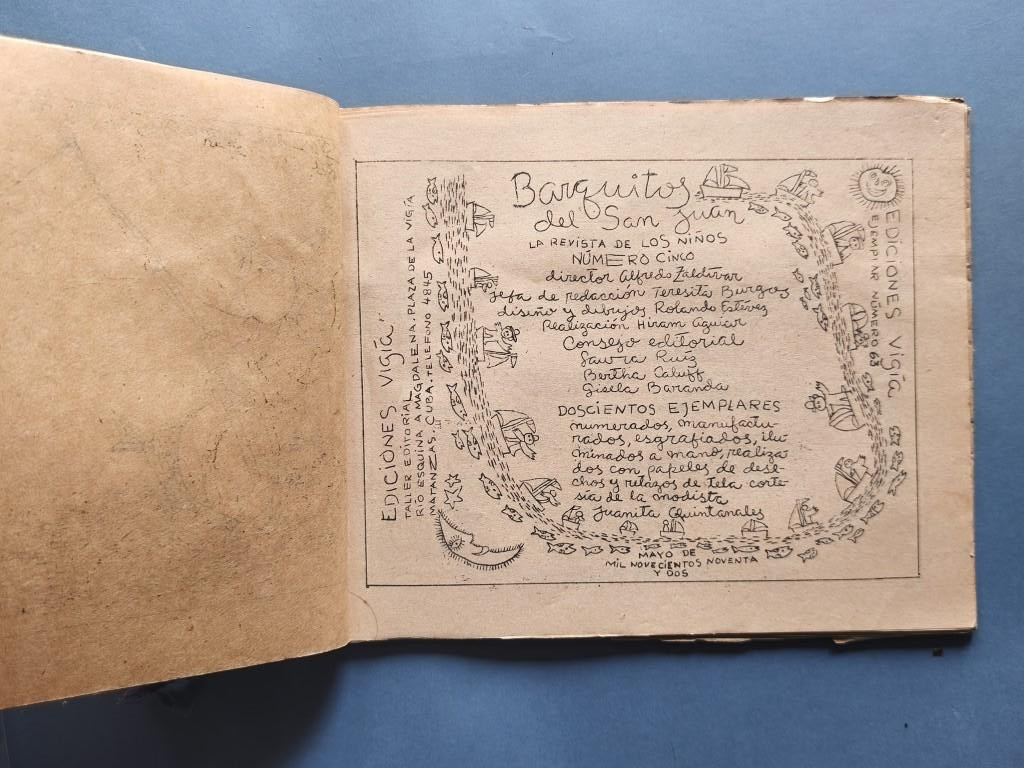 Barquitos
del San Juan
LA REVISTA DE LOS NIÑOS
NÚMERO CINCO
director Alfredo Zaldívar
Jefa de redacción Teresita Burgos
diseño y dibujos Rolando Estévez
Realización Hiram Aguiar
Consejo editorial
Laura Ruiz
Bertha Caluff
Gisela Baranda
DOSCIENTOS EJEMPLARES
numerados, manufactu-
rados, esgrafiados, ilu-
minados a mano, realiza
dos con papeles de dese-
chos y retazos de tela corte-
sía de la modista
Juanita Quintanales
MAYO DE
MIL NOVECIENTOS NOVENTA
Y DOS
EDICIONES VIGÍA
TALLER EDITORIAL
RÍO ESQUINA A MAGDALENA. PLAZA DE LA VIGÍA
MATANZAS. CUBA. TELEFONO 4845
EDICIONES VIGÍA
EJEMPLAR NÚMERO 63